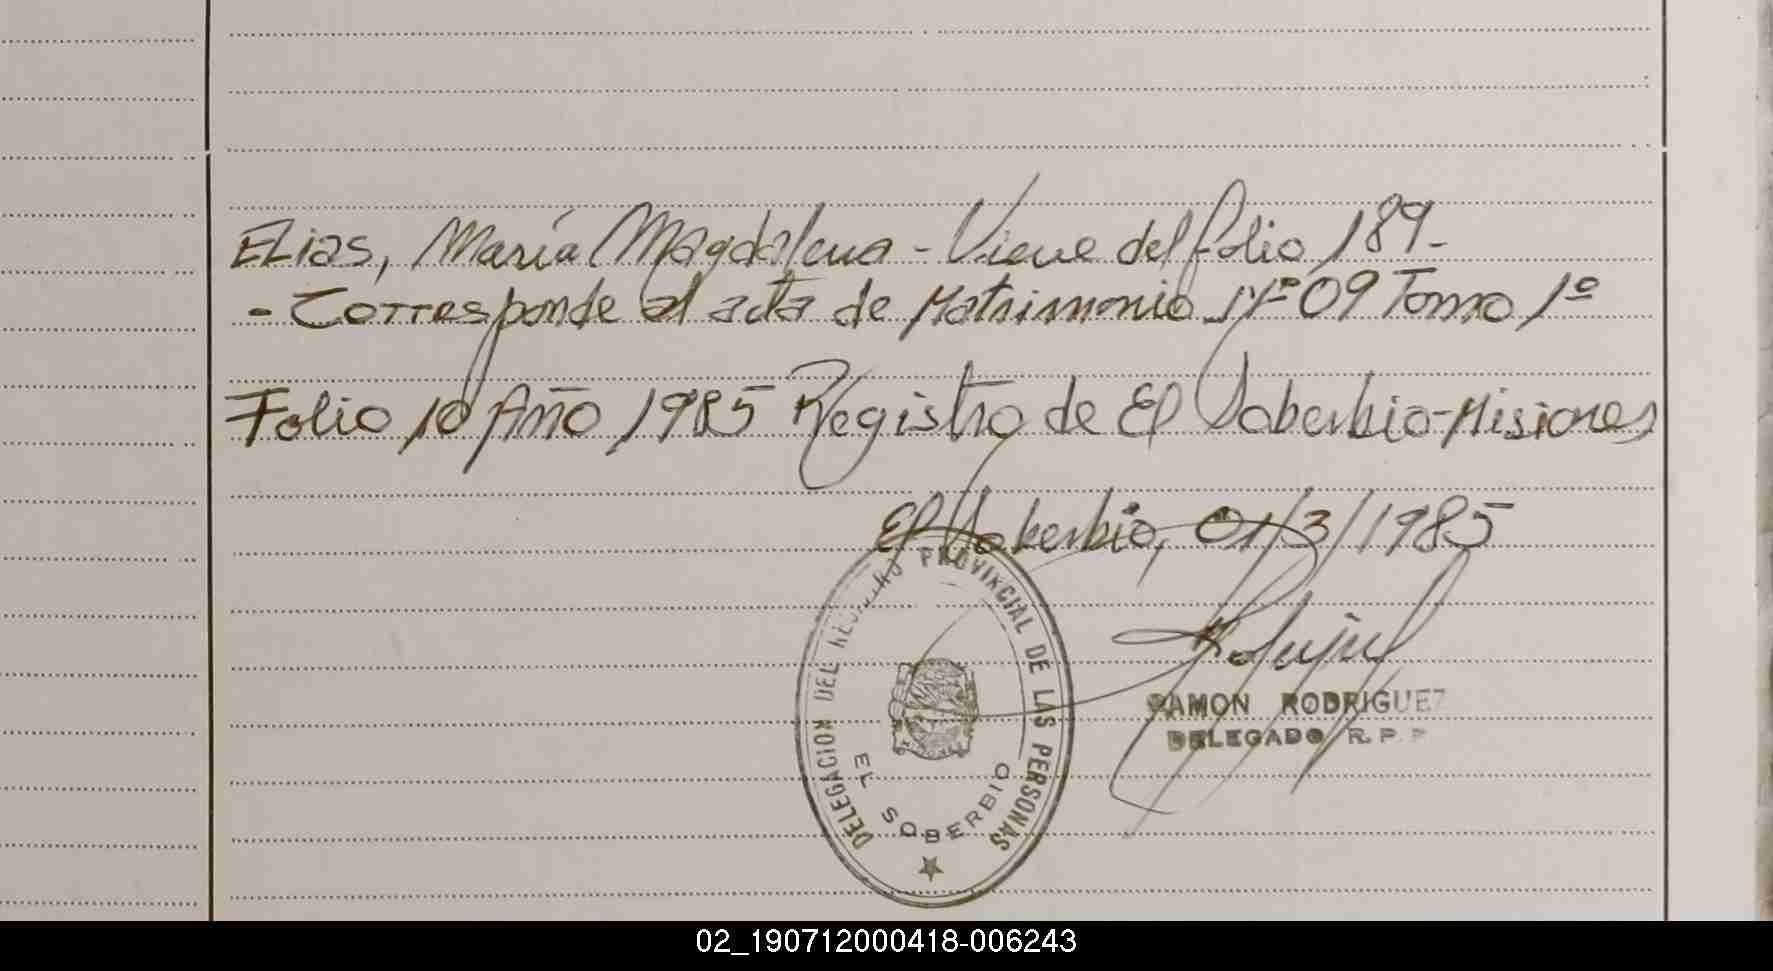 Elias, María Magdalena - Viene del folio 189-
- Corresponde al acta de Matrimonio Nº 09 Tomo 1º
Folio 10 Año 1985 Registro de El Soberbio-Misiones
El Soberbio, 01/3/1985
DELEGACION DEL REGISTRO PROVINCIAL DE LAS PERSONAS
EL SOBERBIO
RAMON RODRIGUEZ
DELEGADO R. P. P
02_190712000418-006243